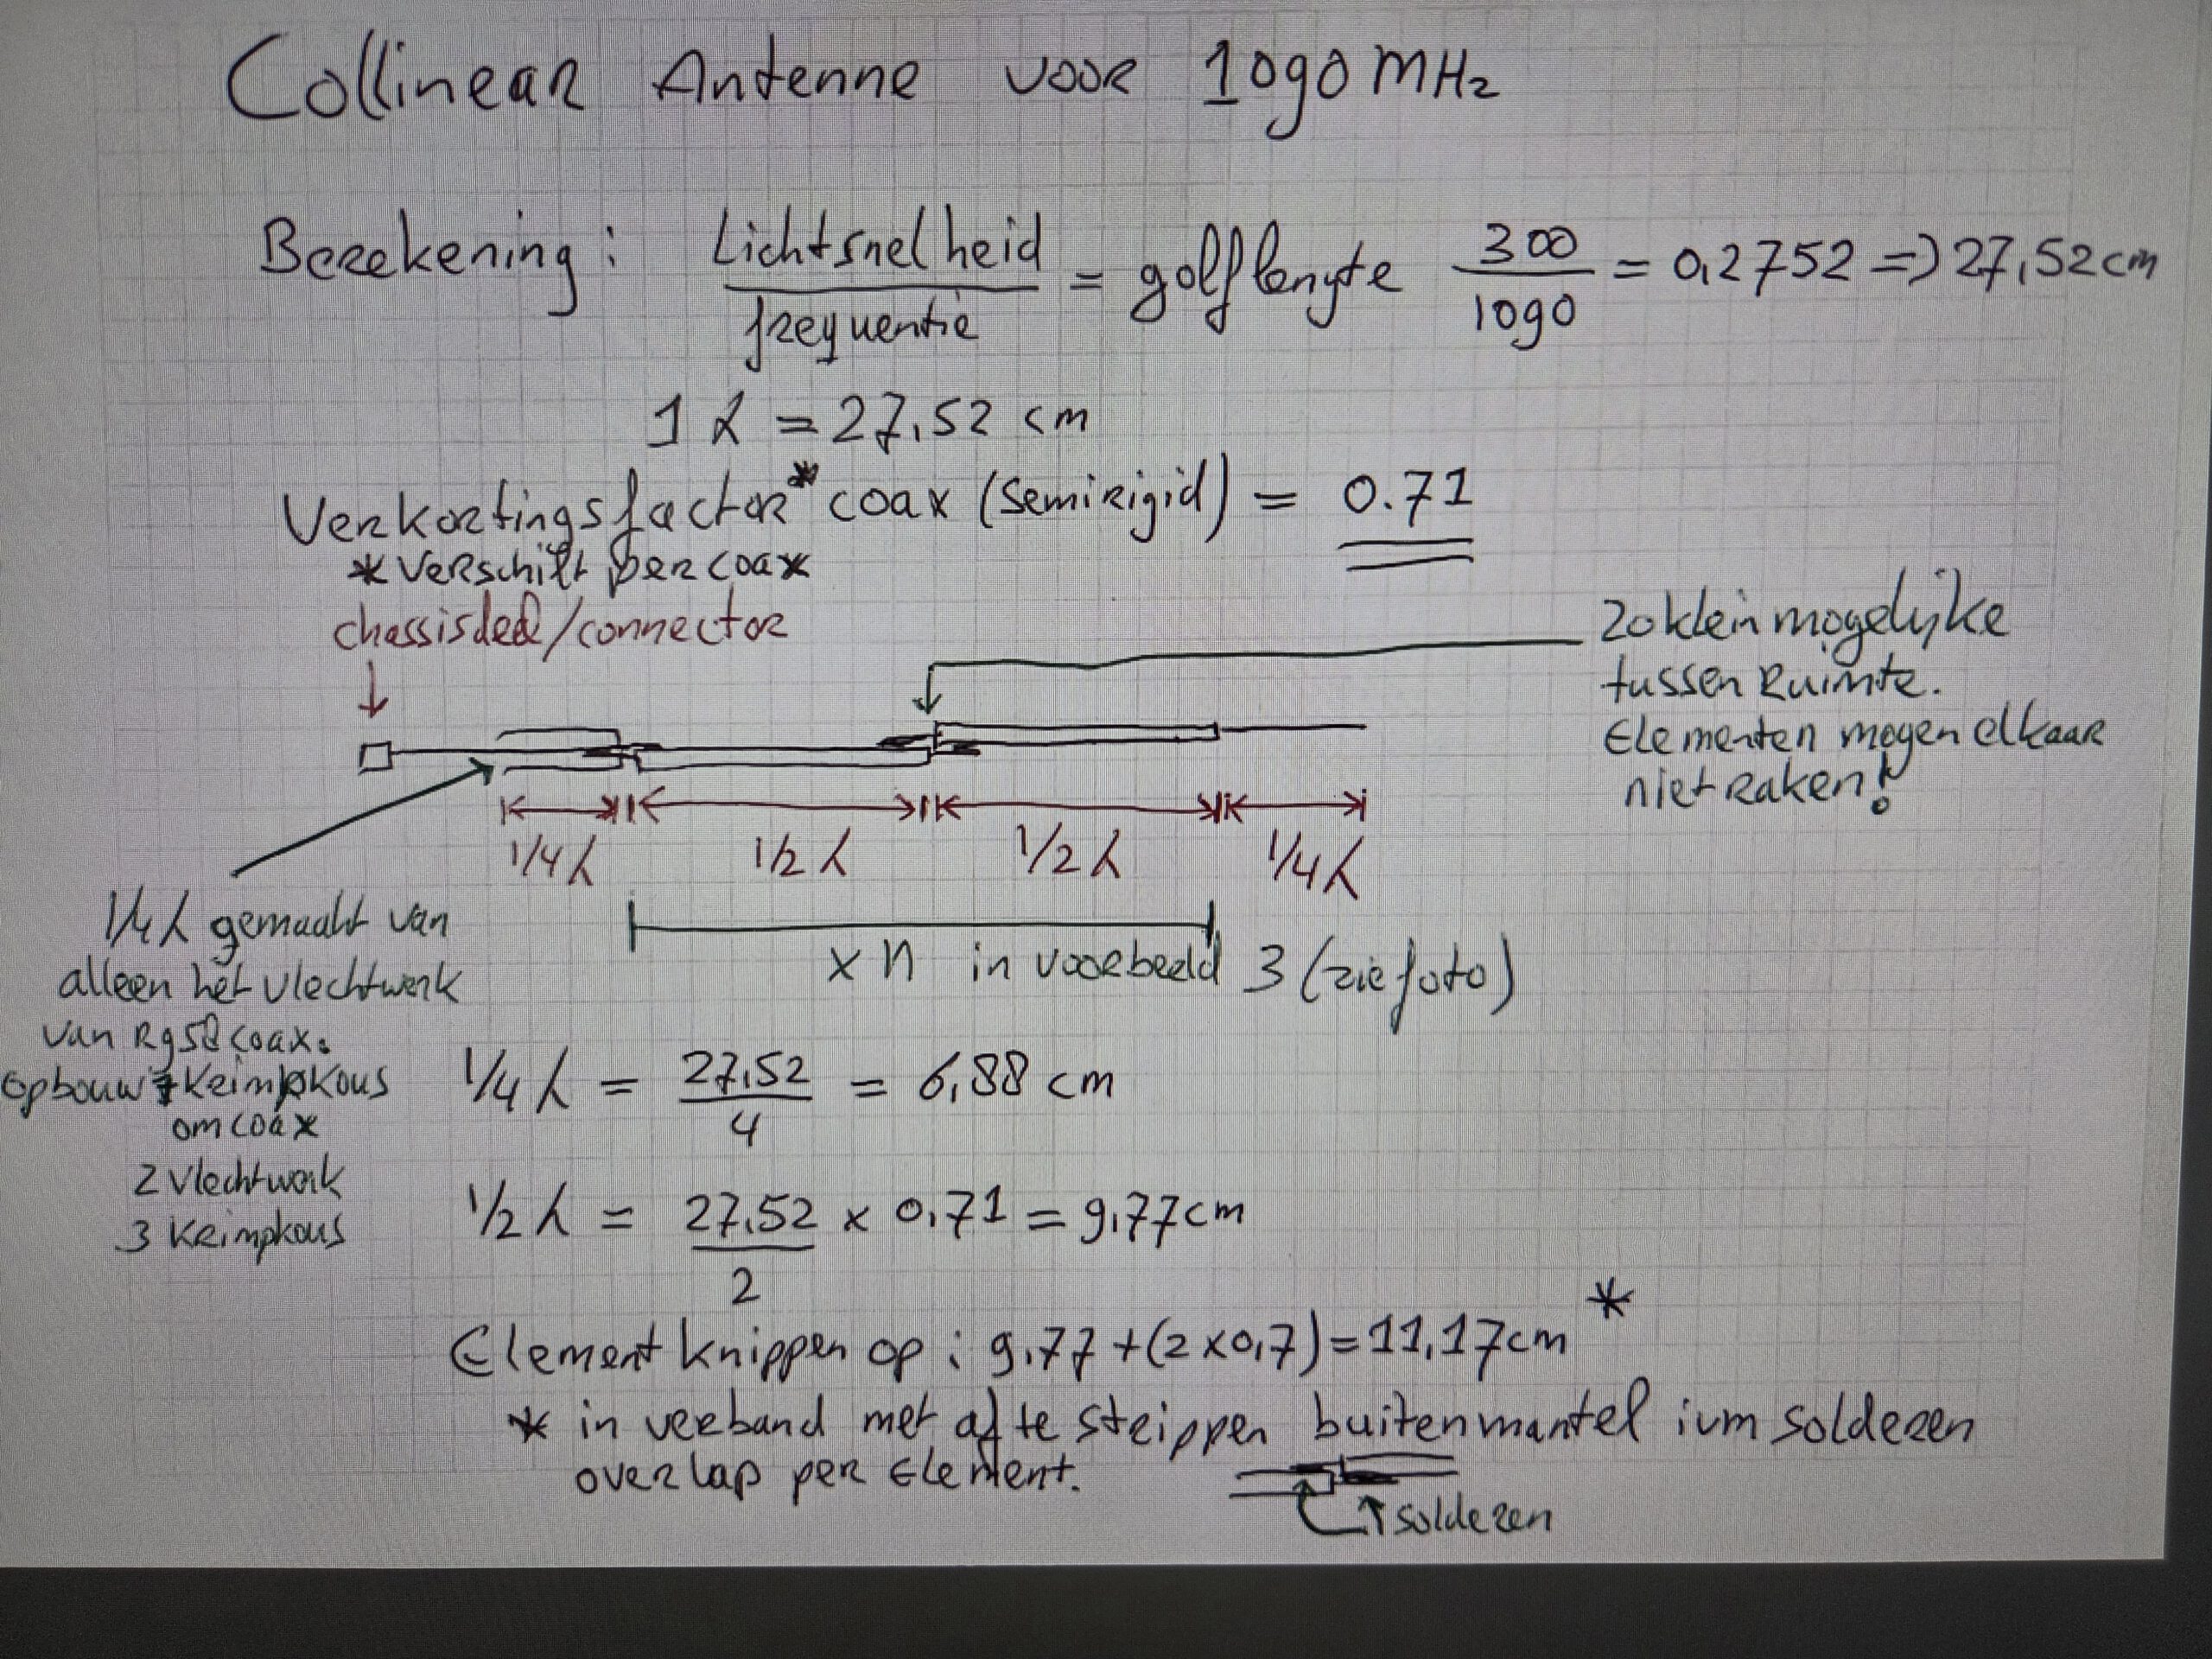 Collinear Antenne voor 1090 MHz
Berekening: Lichtsnelheid / frequentie = golflengte 300 / 1090 = 0,2752 => 27,52 cm
1 λ = 27,52 cm
Verkortingsfactor* coax (semirigid) = 0.71
* Verschilt per coax
chassisdeel/connector
Zo klein mogelijke
tussen Ruimte.
Elementen mogen elkaar
niet raken!
1/4 λ 1/2 λ 1/2 λ 1/4 λ
x n in voorbeeld 3 (zie foto)
1/4 λ gemaakt van
alleen het vlechtwerk
van Rg58 coax.
opbouw 1 Krimpkous
om coax
2 vlechtwerk
3 Krimpkous
1/4 λ = 27,52 / 4 = 6,88 cm
1/2 λ = 27,52 / 2 x 0,71 = 9,77cm
Element knippen op: 9,77 + (2 x 0,7) = 11,17cm *
* in verband met af te strippen buitenmantel ivm solderen
overlap per Element.
solderen